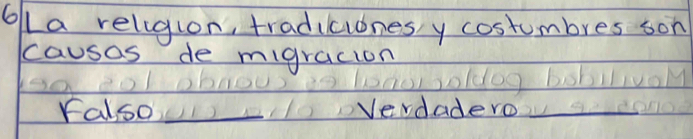 6) La religion, tradiciones y costumbres son
causas de migración
Falso ______ Verdadero ______